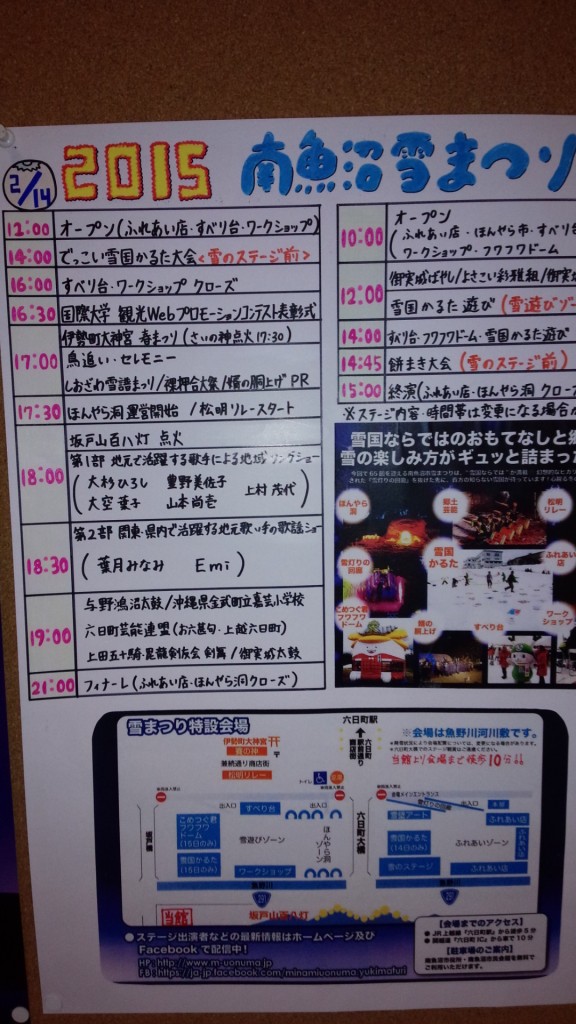 2/14
2015 南魚沼雪まつり
12:00 オープン(ふれあい店・すべり台・ワークショップ)
14:00 でっこい雪国かるた大会<雪のステージ前>
16:00 すべり台・ワークショップ クローズ
16:30 国際大学 観光Webプロモーションコンテスト表彰式
17:00 伊勢町大神宮 春まつり(さいの神点火17:30)
鳥追い・セレモニー
しおざわ雪譜まつり/裸押合大祭/樽の胴上げPR
17:30 ほんやら洞運営開始 / 松明リレースタート
18:00 坂戸山百八灯 点火
第1部 地元で活躍する歌手による地域ソングショー
(大杉ひろし 重野美佐子 上村茂代
大空葉子 山本尚壱)
18:30 第2部 関東・県内で活躍する地元歌い手の歌謡ショー
(葉月みなみ Emi)
19:00 与野鴻沼太鼓/沖縄県金武町立嘉芸小学校
六日町芸能連盟(お六甚句・上越六日町)
上田五十騎・昆龍剣佐会 剣舞/御実城太鼓
21:00 フィナーレ(ふれあい店・ほんやら洞クローズ)
10:00 オープン
(ふれあい店・ほんやら市・すべり台
ワークショップ・フワフワドーム
12:00 御実城ばやし/よさこい彩雅組/御実城
雪国かるた遊び(雪遊びゾー
14:00 すべり台・フワフワドーム・雪国かるた遊び
14:45 餅まき大会(雪のステージ前)
15:00 終演(ふれあい店・ほんやら洞 クローズ
※ステージ内容・時間帯は変更になる場合が
雪国ならではのおもてなしと郷
雪の楽しみ方がギュッと詰まった
ほんやら洞
郷土芸能
松明リレー
雪灯りの回廊
雪国かるた
ふれあい店
こめつぐ君フワフワドーム
樽の胴上げ
すべり台
ワークショップ
雪まつり特設会場
六日町駅
伊勢町大神宮
賽の神
兼続通り商店街
松明リレー
六日町駅前通り商店街
※会場は魚野川河川敷です。
当館より会場まで徒歩10分
トイレ
出入口
すべり台
出入口
こめつぐ君フワフワドーム(15日のみ)
雪遊びゾーン
ほんやら洞ゾーン
雪国かるた(15日のみ)
ワークショップ
坂戸橋
六日町大橋
会場メインエントランス
出入口
本部
雪壁アート
ふれあい店
雪国かるた(14日のみ)
ふれあいゾーン
ふれあい店
雪のステージ
ふれあい店
魚野川
291
291
当館
坂戸山百八灯
●ステージ出演者などの最新情報はホームページ及び
Facebookで配信中!
HP:http://www.m-uonuma.jp
FB:https://ja-jp.facebook.com/minamiuonuma.yukimaturi
【会場までのアクセス】
●JR上越線「六日町駅」から徒歩5分
●関越道「六日町IC」から車で10分
【駐車場のご案内】
南魚沼市役所・南魚沼市民会館を無料で
ご利用いただけます。